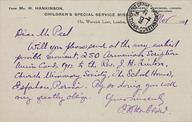 From Mr. H. HANKINSON.
CHILDREN'S SPECIAL SERVICE MISSION
The Warwick Lane, London.
Dear Mr Peel
Will you please send at the very earliest
possible moment 250 Armenian Scripture
Union Cards, 1902 to the Rev. J. H. Linton,
Church Missionary Society, The School House,
Isfahan, Persia. By so doing you will
very greatly oblige.
Yours sincerely